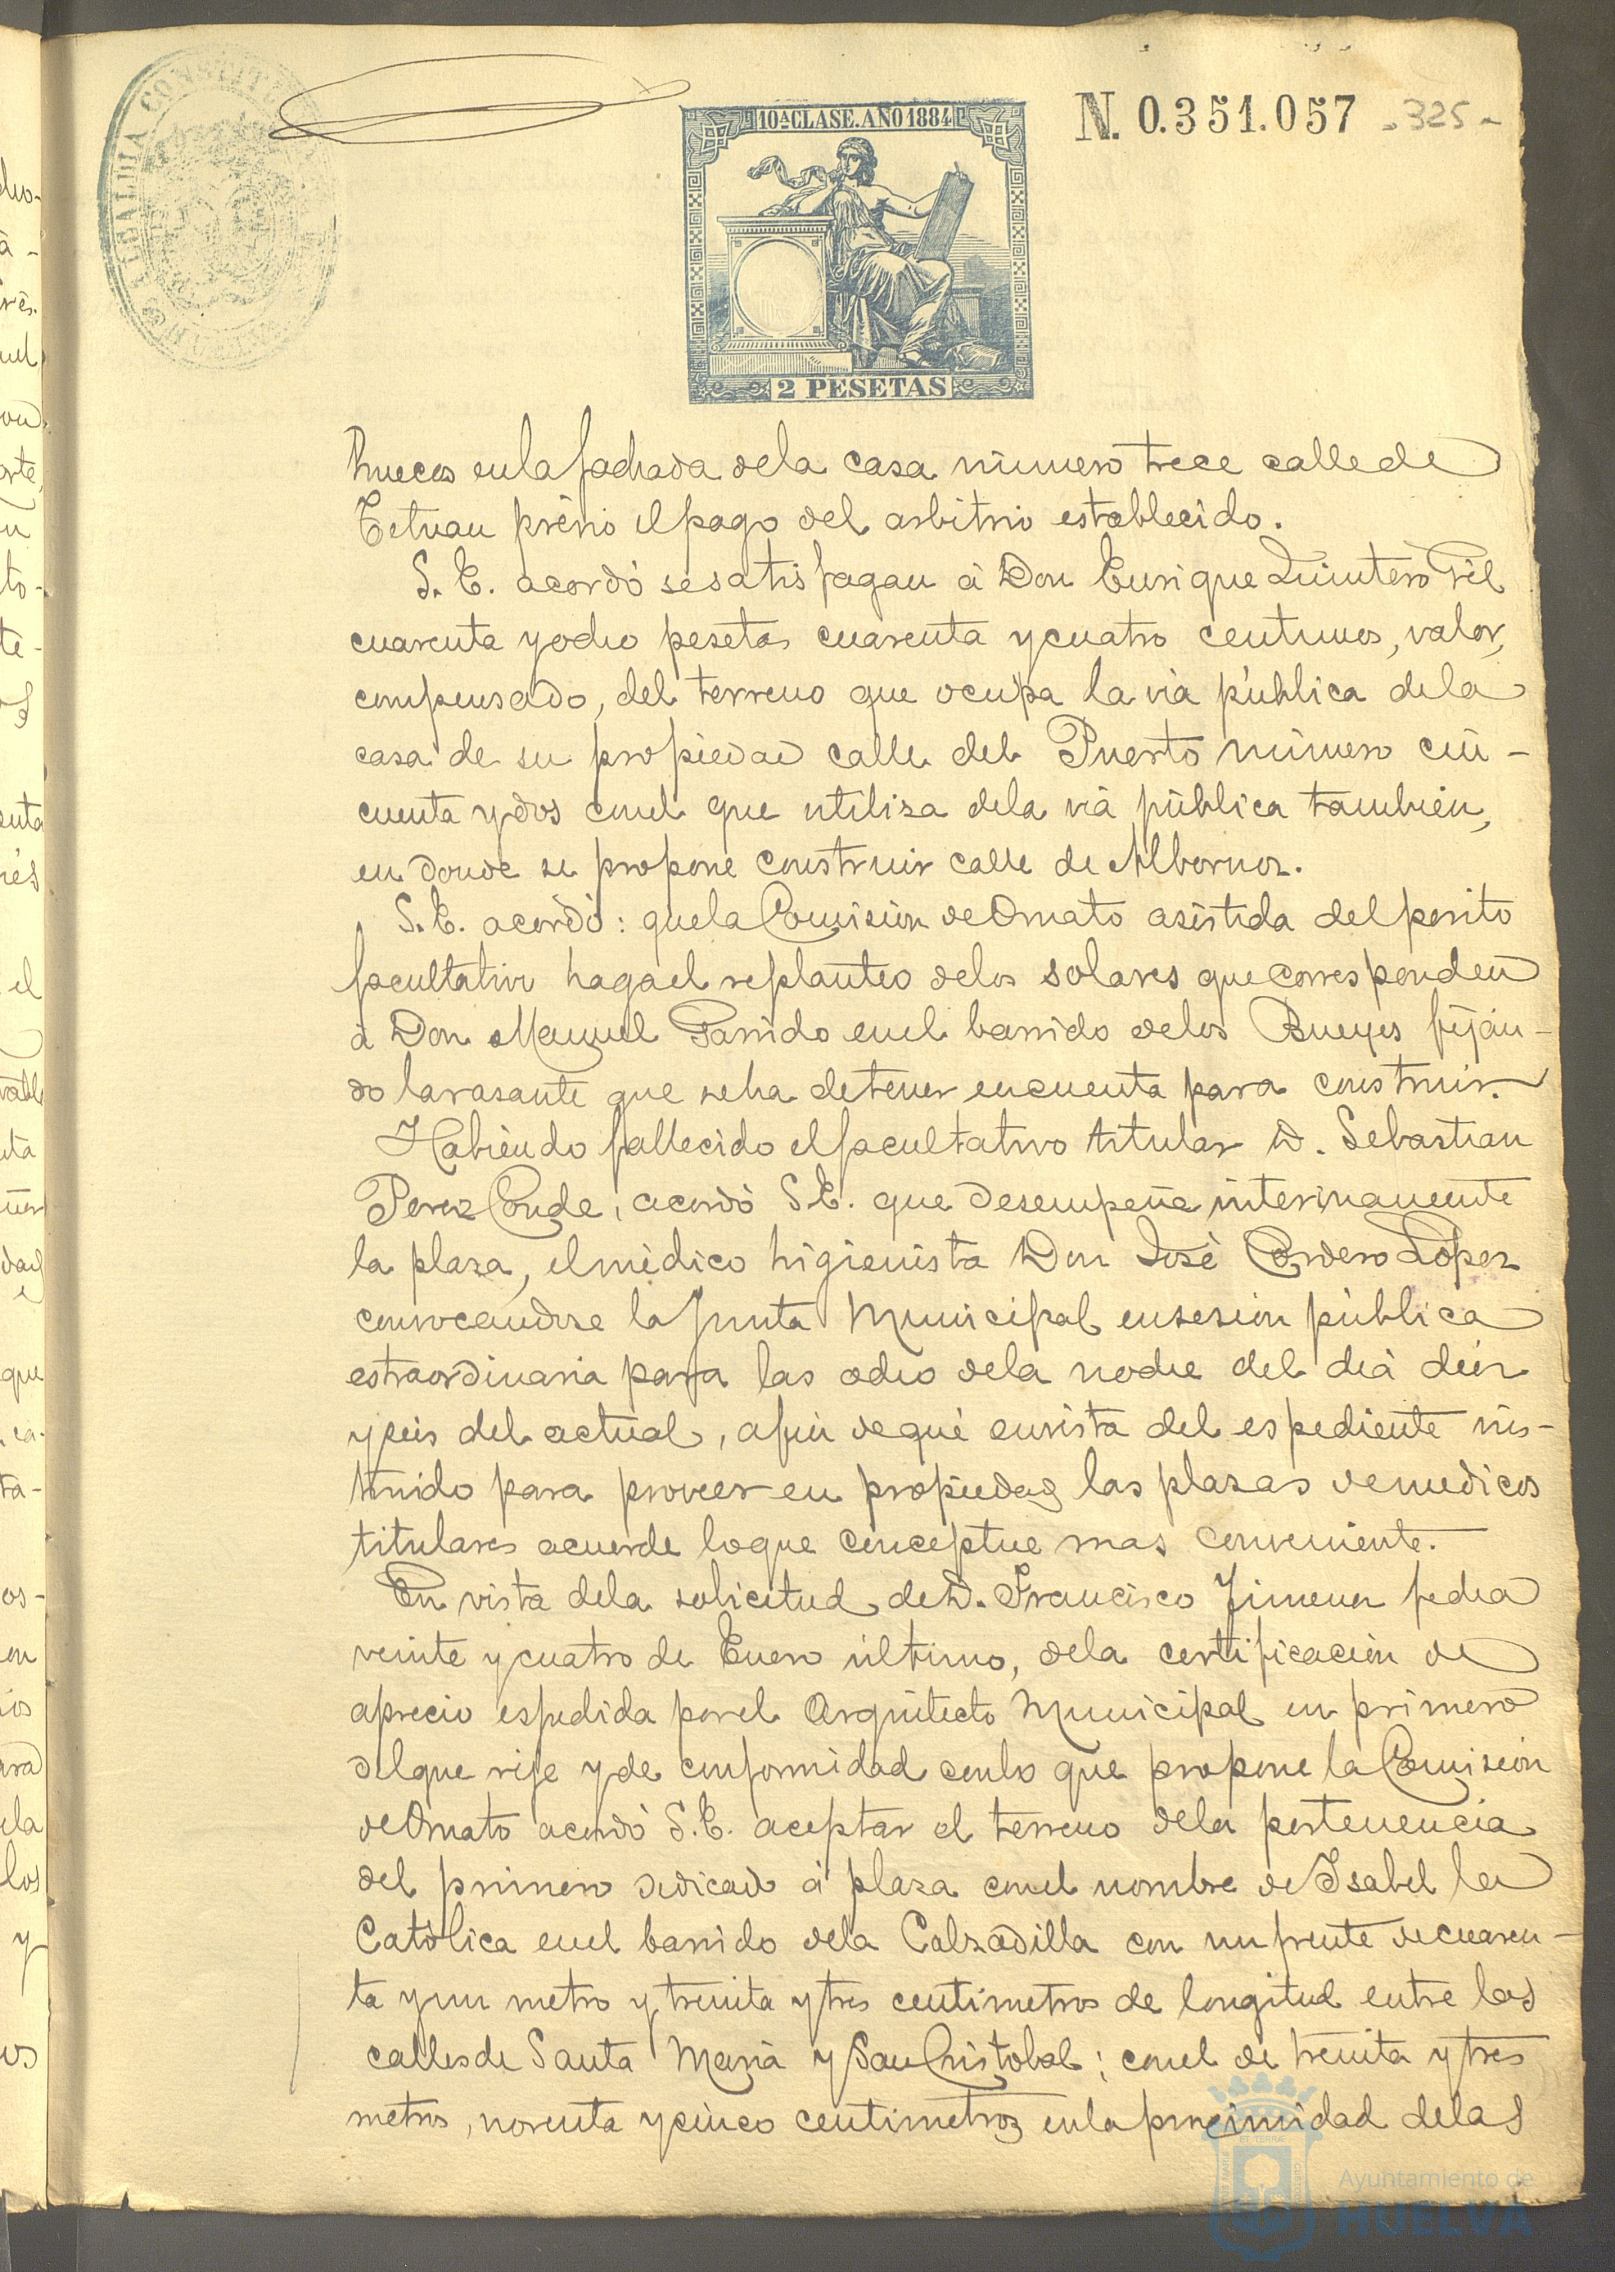 ALCALDIA CONSTIT
N. 0.351.057 - 325 -
10ª CLASE. AÑO 1884
2 PESETAS
huecos en la fachada de la casa número trece calle de
Tetuan prévio el pago del arbitrio establecido.
S. E. acordó se satisfagan á Don Enrique Quintero Gil
cuarenta y ocho pesetas cuarenta y cuatro centimos, valor,
compensado, del terreno que ocupa la via pública de la
casa de su propiedad calle del Puerto número cin-
cuenta y dos con el que utiliza de la via pública tambien,
en donde se propone construir calle de Albornoz.
S. E. acordó: que la Comisión de Ornato asistida del perito
facultativo haga el replanteo de los solares que corresponden
á Don Manuel Garrido en el barrido de los Bueyes fiján-
do la rasante que se ha de tener en cuenta para construir.
Habiendo fallecido el facultativo titular D. Sebastian
Perez Conde, acordó S. E. que desempeñe interinamente
la plaza, el médico higienista Don José Cordero Lópex
convocandose la Junta Municipal en sesion pública
estraordinaria para las ocho de la noche del dia diez
y seis del actual, a fin de qué en vista del espediente ins-
truido para proveer en propiedad las plazas de medicos
titulares acuerde lo que conceptue mas conveniente.
En vista de la solicitud de D. Francisco Jimenez fecha
veinte y cuatro de Enero último, de la certificacion de
aprecio espedida por el Arquitecto Municipal en primero
del que rije y de conformidad con lo que propone la Comisión
de Ornato acordó S. E. aceptar el terreno de la pertenencia
del primero dedicado á plaza con el nombre de Isabel la
Católica en el barrido de la Calzadilla con un frente de cuaren-
ta y un metro y treinta y tres centimetros de longitud entre las
calles de Santa Maria y San Cristobal; con el de treinta y tres
metros, noventa y cinco centimetros en la procsimidad de las
Ayuntamiento de
HUELVA